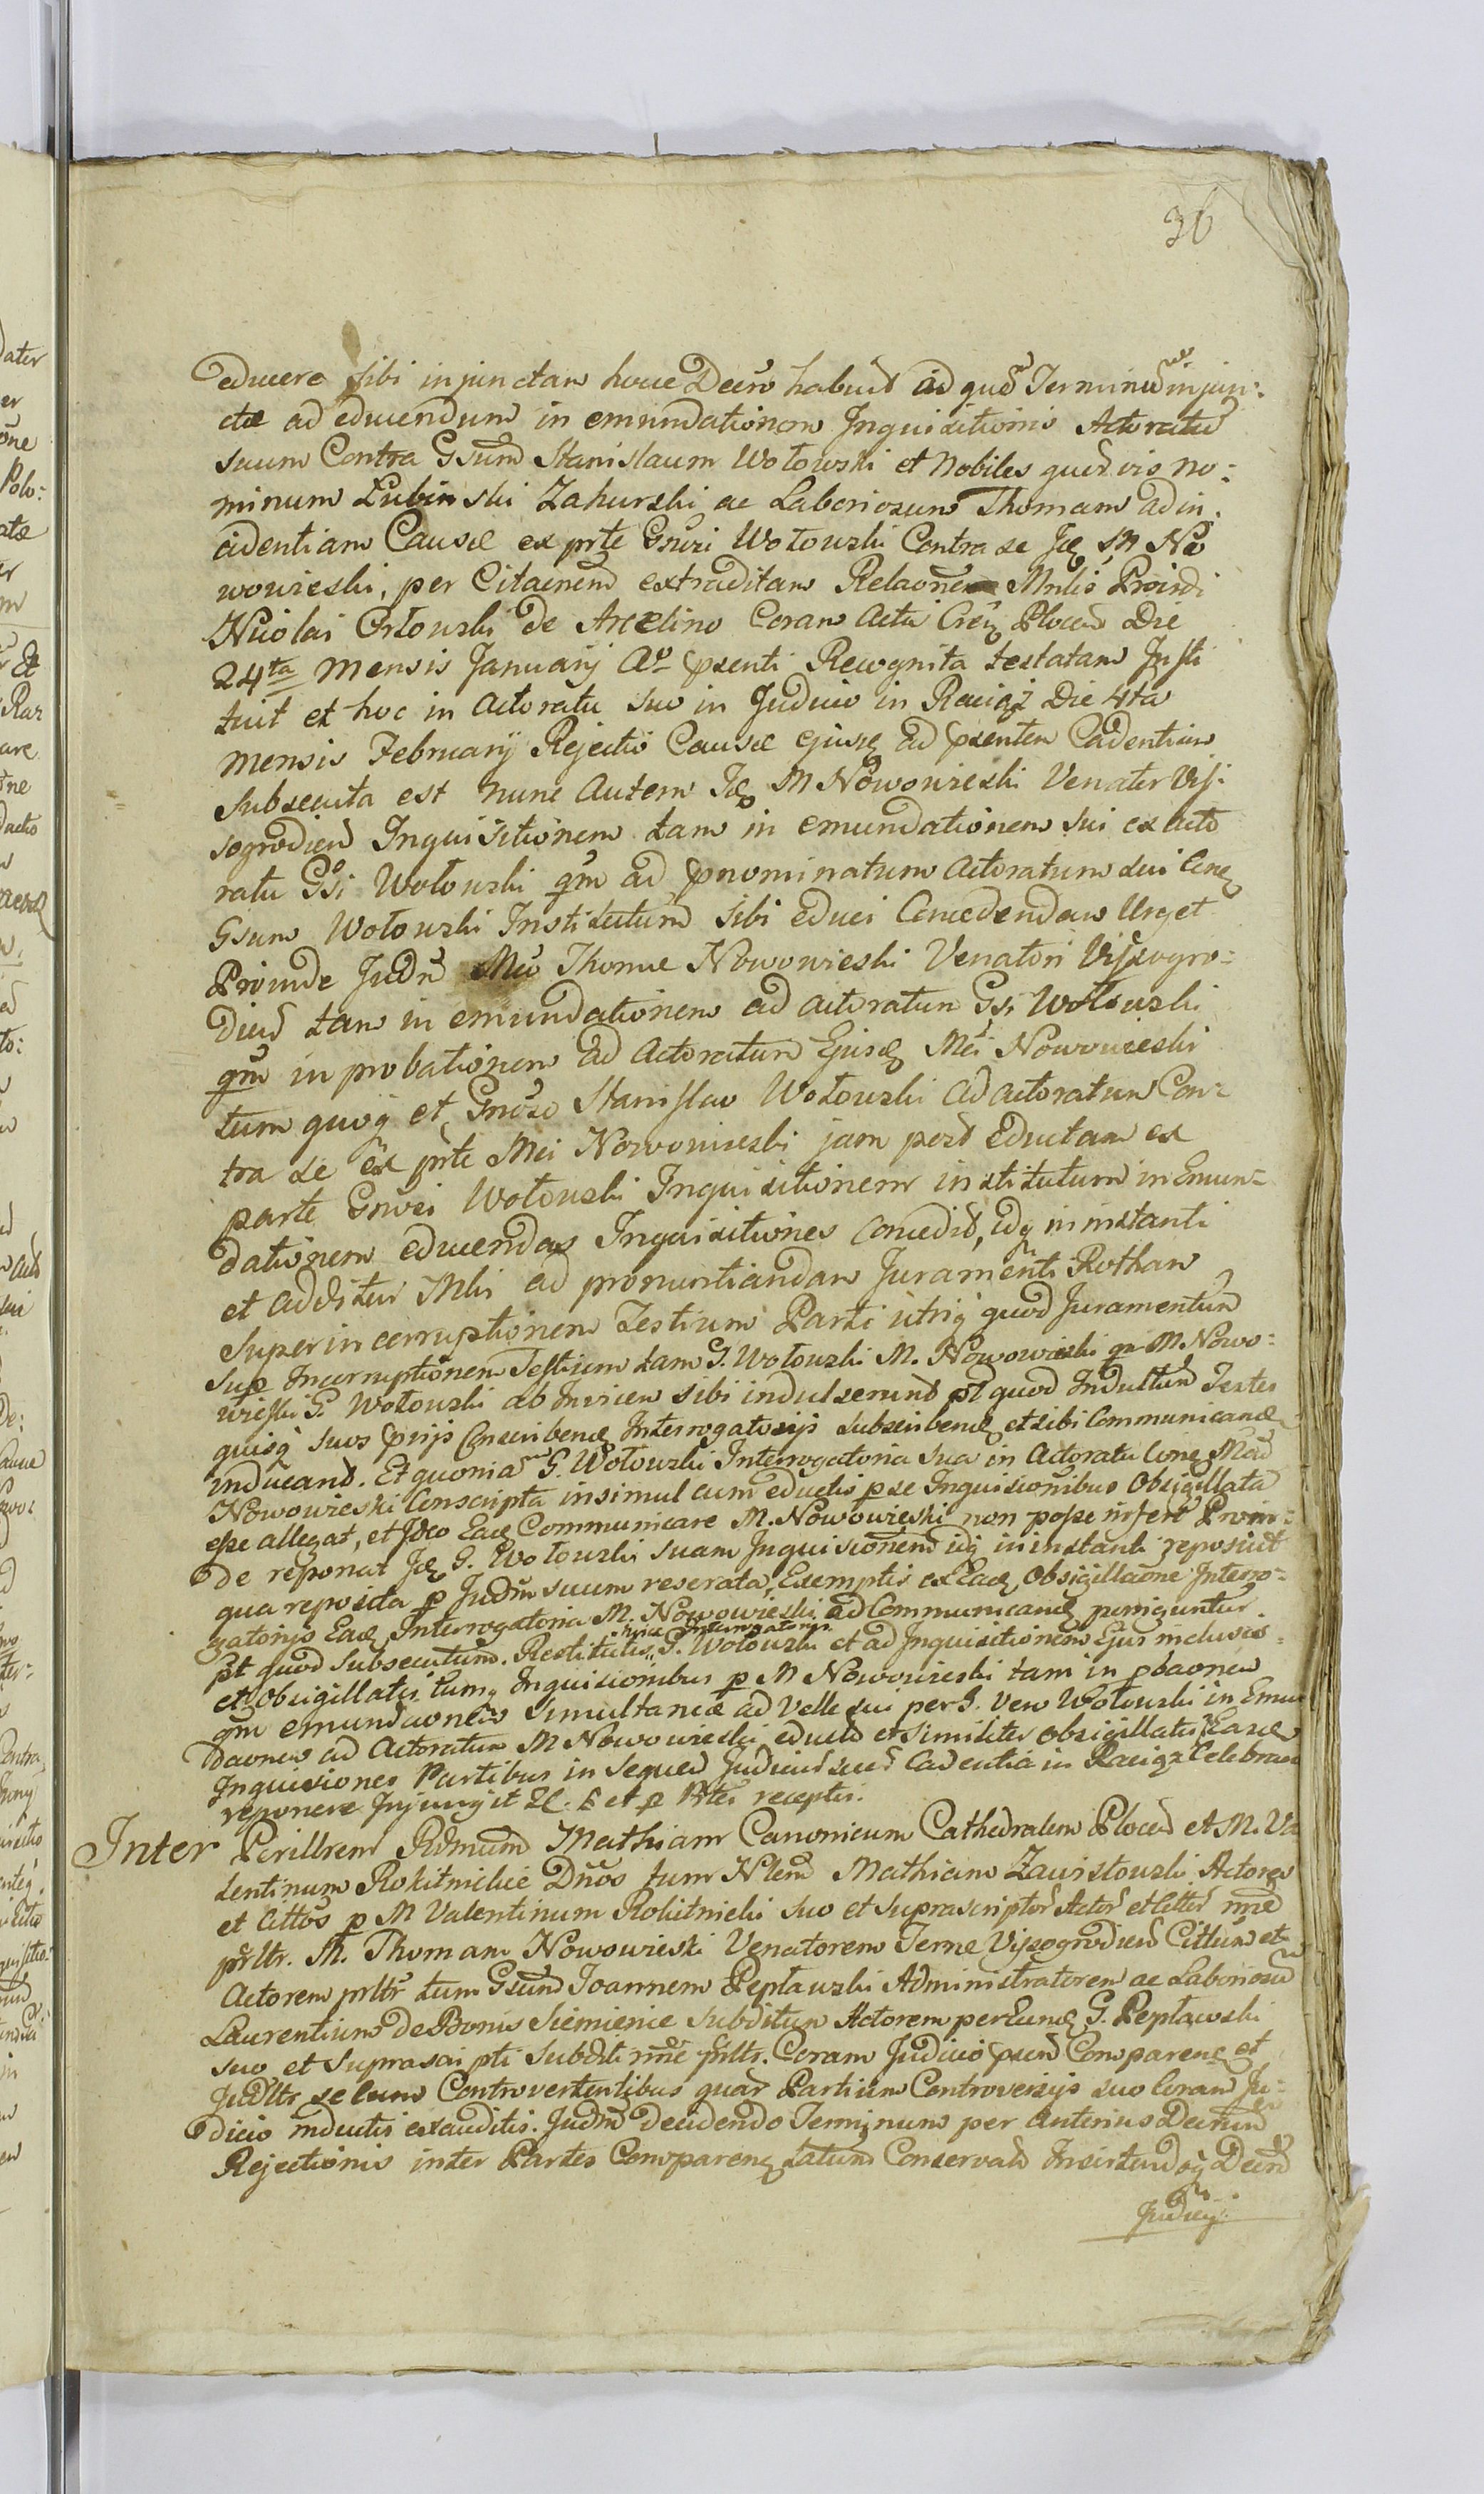 36
educere sibi injunctam hocce Decro habuit ad quod Terminum injun:
ctae ad educendum in emundationem Inquisitionis Actoratus
suum Contra Gsum Stanislaum Wołowski et Nobiles quosvis no:
minum Łubinski Zakurski ac Laboriosum Thomam ad in:
cidentiam Causae ex prte Gsuri Wołowski Contra se Id M No
wowieski, per Citaonem extraditam Relaone Mnlis Providi
Nicolai Orłowski de Arcelino Coram Actis Plocen Die
24ta Mensis Januarij Ao psenti Recognita testatam Insti
tuit et hoc in Actoratu suo in Judicio in Raciąz Die 4ta
Mensis February Rejectio Causae ejusq ad psentem Cadentiam
subsecuta est nunc Autem Id M Nowowieski Venator Vis:
sogrodien Inquisitionem tam in emundationem sui ex acto
ratu Gsi Wołowski qm ad pnominatum actoratum sui Cnq
Gsum Wołowski Institutum sibi educi Concedendam Urget
Proinde Judm Mco Thomae Nowowieski Venatori Vissogro:
dien tam in emundationem ad actoratum Gsi Wołowski
qm in probationem ad Actoratum Ejusd Mci Nowowieski
tum quoq et Gnoso Stanislao Wołowski ad actoratum Con:
tra se ex prte Mci Nowowieski jam post eductam ex
parte Gnosi Wołowski Inquisitionem institutum in Emun:
dationem educendas Inquisitiones concedit, idq in instanti
et additur Mlis ad pronuntiandam Juramenti Rotham
Super incorruptionem Testium Parti utriq quod Juramentum
Sup Incorruptionem Testium tam G. Wołowski M. Nowowieski qm M. Nowo:
wieski G. Wołowski ab Invicem sibi indulserunt pt quod Indultum Testes
quisq suos pvijs Conscribend Interrogatorijs subscribend et sibi Communicand
inducant. Et quoniam G. Wołowski Interrogatoria sua in Actoratu Cong Mcd
Nowowieski Conscripta insimul cum eductis p se Inquisionibus Obsigillata
esse allegat, et ideo Ead Communicare M. Nowowieski non posse infert Proin:
de reponat Id G. Wołowski suam Inquisionem idq in instanti reposuit
qua reposita p Judm suum reserata, Exemptis ex Ead Obsigillaone Interro:
gatorijs Ead Interrogatoria M. Nowowieski ad Communicand poriguntur
pt quod subsecutum. Restitutis hisce Interrogatorijs G. Wołowski et ad Inquisitionem Ejus inclusis
et obsigillatis tumq Inquisionibus p M Nowowieski tam in pbaonem
qm emundaonem simultanee ad Velle sui per G. Vero Wołowski in Emun
daonem ad Actoratum M Nowowieski educt et similiter obsigillatis Easd
Inquisiones Partibus in sequen Judicior suor Cadentia in Raciąz Celebran
reponere Injungit et p Ptes receptis.
Inter Perillrem Rdmum Mathiam Canonicum Cathedralem Plocen et M. Va
lentinum Rokitnickie Dnos tum Nlem Mathiam Zawistowski Actores
et Cittos p M Valentinum Rokitnicki suo et suprascriptor Actor et Cittor nne
prltr. M. Thomam Nowowieski Venatorem Terrae Vissogrodien Cittum et
Actorem prltr tum Gsum Joannem Peptawski Administratorem ac Laboriosu
Laurentium de Bonis Siemienie Subditum Actorem per Eund G. Peptawski
suo et suprascipti Subditi nne prltr. Coram Judicio psen Comparend et
Judltr se cum Controvertentibus quar Partium Controversijs suo Coram Ju:
dicio inductis exauditis. Judm decidendo Terminum per anterius Decretum
Rejectionis inter Partes Comparend Latum Conservat Insistendoq Decro
Judicij